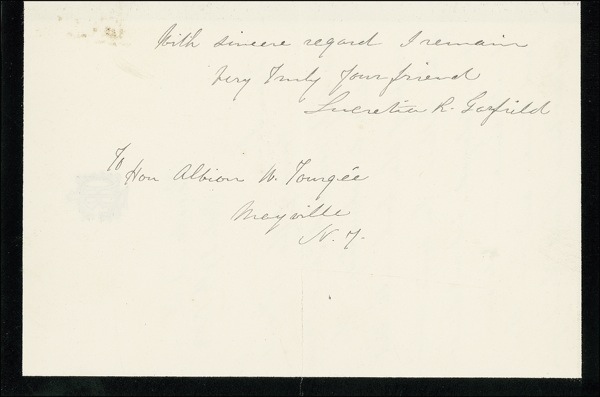 With sincere regard I remain
Very Truly Your friend
Lucretia R. Garfield
To
Hon Albion W. Tourgée
Mayville
N. Y.